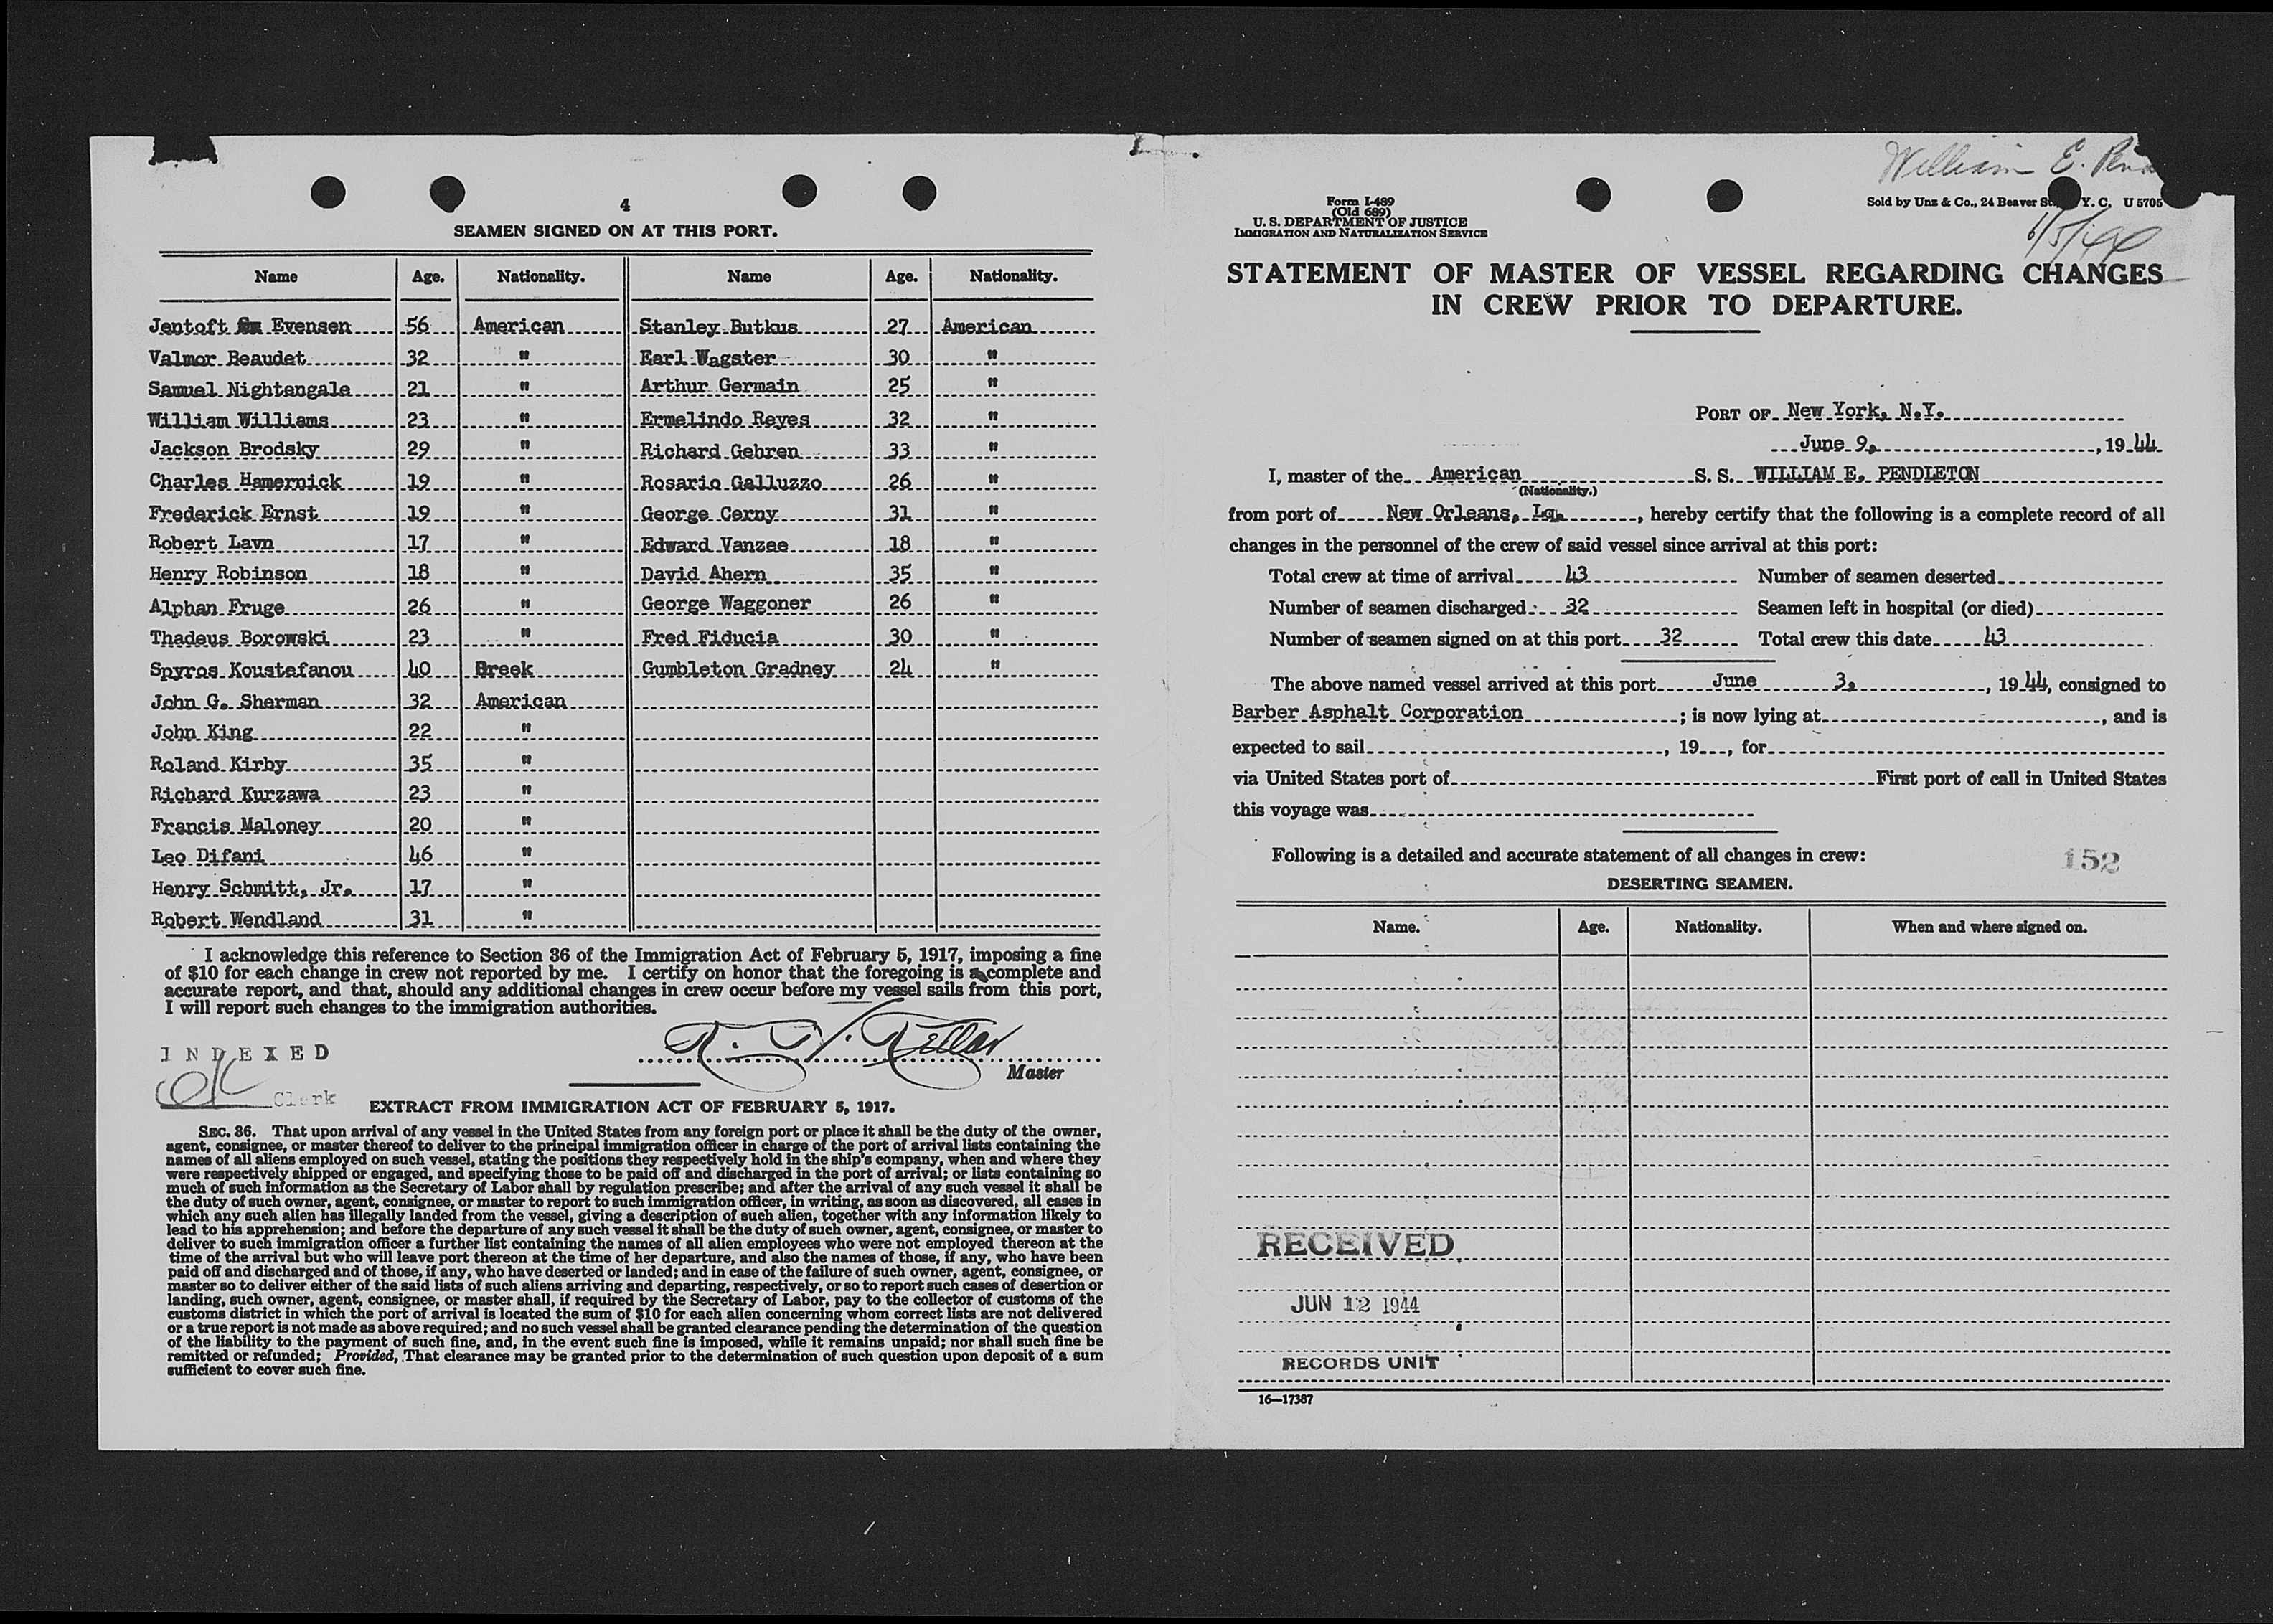 4
SEAMEN SIGNED ON AT THIS PORT.
Name Age. Nationality. Name Age. Nationality.
Jentoft Evensen 56 American Stanley Butkus 27 American
Valmor Beaudet 32 " Earl Wagster 30 "
Samuel Nightengale 21 " Arthur Germain 25 "
William Williams 23 " Ermelindo Reyes 32 "
Jackson Brodsky 29 " Richard Gehren 33 "
Charles Hamernick 19 " Rosario Galluzzo 26 "
Frederick Ernst 19 " George Cerny 31 "
Robert Lavn 17 " Edward Vanzee 18 "
Henry Robinson 18 " David Ahern 35 "
Alphan Fruge 26 " George Waggoner 26 "
Thadeus Borowski 23 " Fred Fiducia 30 "
Spyros Koustefanou 40 Greek Gumbleton Gradney 24 "
John G. Sherman 32 American
John King 22 "
Roland Kirby 35 "
Richard Kurzawa 23 "
Francis Maloney 20 "
Leo Difani 46 "
Henry Schmitt, Jr. 17 "
Robert Wendland 31 "
I acknowledge this reference to Section 36 of the Immigration Act of February 5, 1917, imposing a fine
of $10 for each change in crew not reported by me. I certify on honor that the foregoing is a complete and
accurate report, and that, should any additional changes in crew occur before my vessel sails from this port,
I will report such changes to the immigration authorities.
Master
INDEXED
OK Clerk
EXTRACT FROM IMMIGRATION ACT OF FEBRUARY 5, 1917.
SEC. 36. That upon arrival of any vessel in the United States from any foreign port or place it shall be the duty of the owner,
agent, consignee, or master thereof to deliver to the principal immigration officer in charge of the port of arrival lists containing the
names of all aliens employed on such vessel, stating the positions they respectively hold in the ship's company, when and where they
were respectively shipped or engaged, and specifying those to be paid off and discharged in the port of arrival; or lists containing so
much of such information as the Secretary of Labor shall by regulation prescribe; and after the arrival of any such vessel it shall be
the duty of such owner, agent, consignee, or master to report to such immigration officer, in writing, as soon as discovered, all cases in
which any such alien has illegally landed from the vessel, giving a description of such alien, together with any information likely to
lead to his apprehension; and before the departure of any such vessel it shall be the duty of such owner, agent, consignee, or master to
deliver to such immigration officer a further list containing the names of all alien employees who were not employed thereon at the
time of the arrival but who will leave port thereon at the time of her departure, and also the names of those, if any, who have been
paid off and discharged and of those, if any, who have deserted or landed; and in case of the failure of such owner, agent, consignee, or
master so to deliver either of the said lists of such aliens arriving and departing, respectively, or so to report such cases of desertion or
landing, such owner, agent, consignee, or master shall, if required by the Secretary of Labor, pay to the collector of customs of the
customs district in which the port of arrival is located the sum of $10 for each alien concerning whom correct lists are not delivered
or a true report is not made as above required; and no such vessel shall be granted clearance pending the determination of the question
of the liability to the payment of such fine, and, in the event such fine is imposed, while it remains unpaid; nor shall such fine be
remitted or refunded; Provided, That clearance may be granted prior to the determination of such question upon deposit of a sum
sufficient to cover such fine.
William E.
Form I-489
(Old 689)
U. S. DEPARTMENT OF JUSTICE
IMMIGRATION AND NATURALIZATION SERVICE
Sold by Unz & Co., 24 Beaver Y. C. U 5705
STATEMENT OF MASTER OF VESSEL REGARDING CHANGES
IN CREW PRIOR TO DEPARTURE.
PORT OF New York, N.Y.
June 9, , 19 44
I, master of the American S. S. WILLIAM E. PENDLETON
(Nationality.)
from port of New Orleans, La. , hereby certify that the following is a complete record of all
changes in the personnel of the crew of said vessel since arrival at this port:
Total crew at time of arrival 43 Number of seamen deserted
Number of seamen discharged 32 Seamen left in hospital (or died)
Number of seamen signed on at this port 32 Total crew this date 43
The above named vessel arrived at this port June 3, , 19 44, consigned to
Barber Asphalt Corporation ; is now lying at , and is
expected to sail , 19 , for
via United States port of First port of call in United States
this voyage was
Following is a detailed and accurate statement of all changes in crew:
152
DESERTING SEAMEN.
Name. Age. Nationality. When and where signed on.
RECEIVED
JUN 12 1944
RECORDS UNIT
16—17387